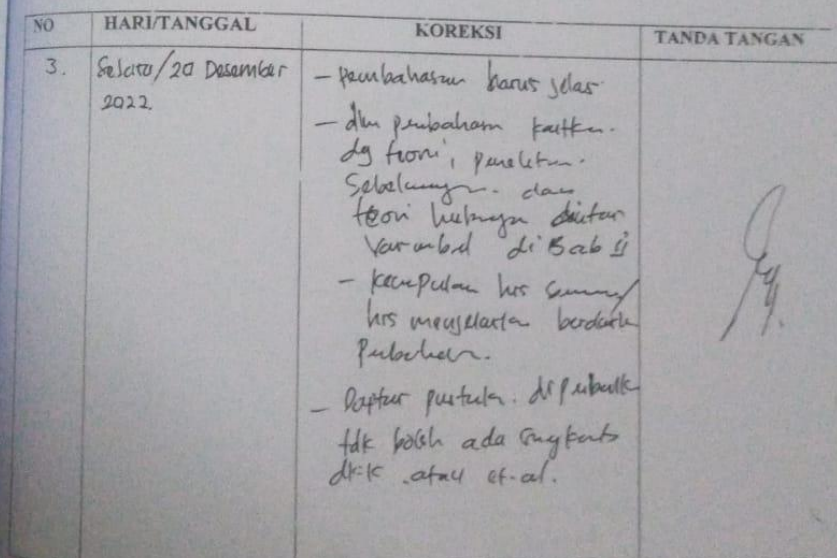 NO HARI/TANGGAL KOREKSI TANDA TANGAN
3. Selasa/20 Desember
2022.
- pembahasan harus jelas
- dlm pembahasan kaitkan
dg teori, penelitian
Sebelumnya dan
teori hubungan diantar
Variabel di Bab II
- Kesimpulan hrs
hrs menjelaskan berdasarkan
Pembahasan.
- Daftar pustaka. diperbaiki
tdk boleh ada singkatan
dkk atau et-al.